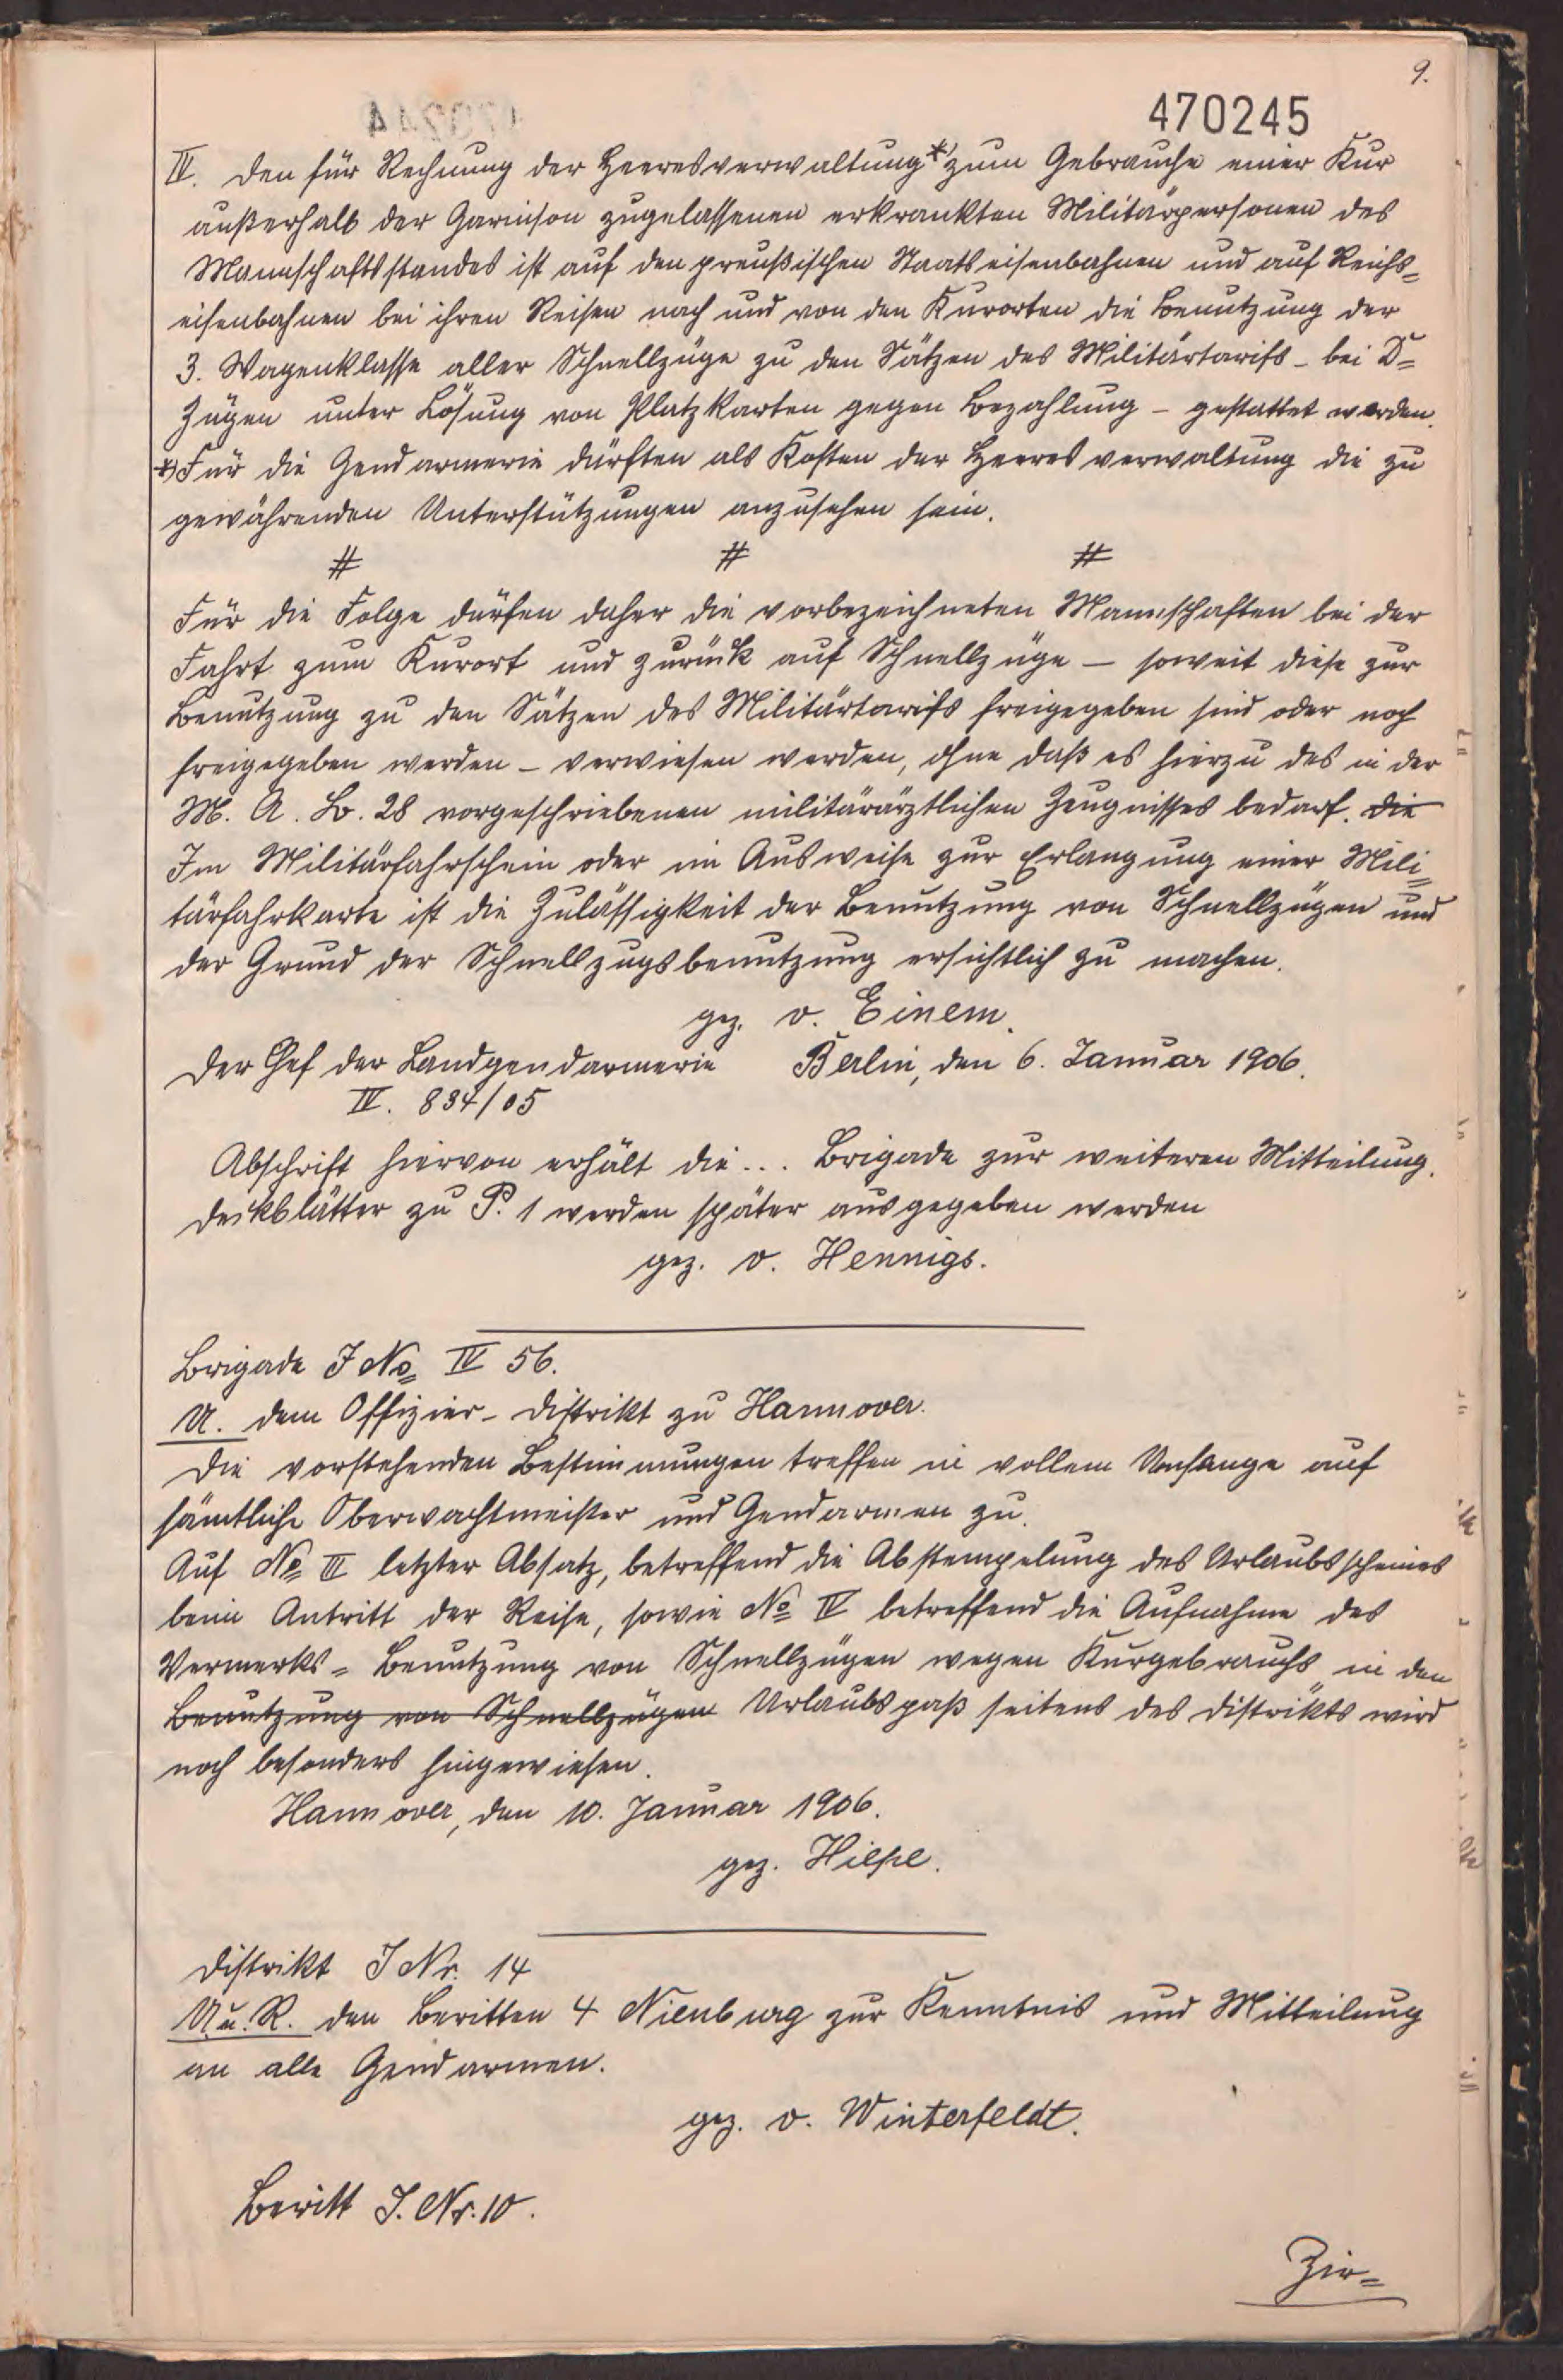 9.
470245
IV. Den für Rechnung der Heeresverwaltung *) zum Gebrauche einer Kur
außerhalb der Garnison zugelassenen erkrankten Militärpersonen des
Mannschaftsstandes ist auf den preußischen Staatseisenbahnen und auf Reichs=
eisenbahnen bei ihren Reisen nach und von den Kurorten die Benutzung der
3. Wagenklasse aller Schnellzüge zu den Sätzen des Militärtarifs - bei D=
Zügen unter Lösung von Platzkarten gegen Bezahlung - gestattet worden.
*) Für die Gendarmerie dürften als Kosten der Heeresverwaltung die zu
gewährenden Unterstützungen anzusehen sein.
# # #
Für die Folge dürfen daher die vorbezeichneten Mannschaften bei der
Fahrt zum Kurort und zurück auf Schnellzüge – soweit diese zur
Benutzung zu den Sätzen des Militärtarifs freigegeben sind oder noch
freigegeben werden – verwiesen werden, ohne daß es hierzu des in der
M. A. B. 28 vorgeschriebenen militärärztlichen Zeugnisses bedarf. Die
Im Militärfahrschein oder im Ausweise zur Erlangung einer Mili=
tärfahrkarte ist die Zulässigkeit der Benutzung von Schnellzügen und
der Grund der Schnellzugsbenutzung ersichtlich zu machen.
gez. v. Einem.
Der Chef der Landgendarmerie Berlin, den 6. Januar 1906.
IV. 834/05
Abschrift hiervon erhält die ... Brigade zur weiteren Mitteilung.
Deckblätter zu P. 1 werden später ausgegeben werden
gez. v. Hennigs.
Brigade J No IV 56.
U. dem Offizier-Distrikt zu Hannover.
Die vorstehenden Bestimmungen treffen in vollem Umfange auf
sämtliche Oberwachtmeister und Gendarmen zu.
Auf No III letzter Absatz, betreffend die Abstempelung des Urlaubsscheines
beim Antritt der Reise, sowie No IV betreffend die Aufnahme des
Vermerks = Benutzung von Schnellzügen wegen Kurgebrauchs in den
Benutzung von Schnellzügen Urlaubspaß seitens des Distrikts wird
noch besonders hingewiesen.
Hannover, den 10. Januar 1906.
gez. Hiepe.
Distrikt J Nr. 14
U. u. R. den Beritten 4 Nienburg zur Kenntnis und Mitteilung
an alle Gendarmen.
gez. v. Winterfeldt.
Beritt J. Nr. 10.
Zir=